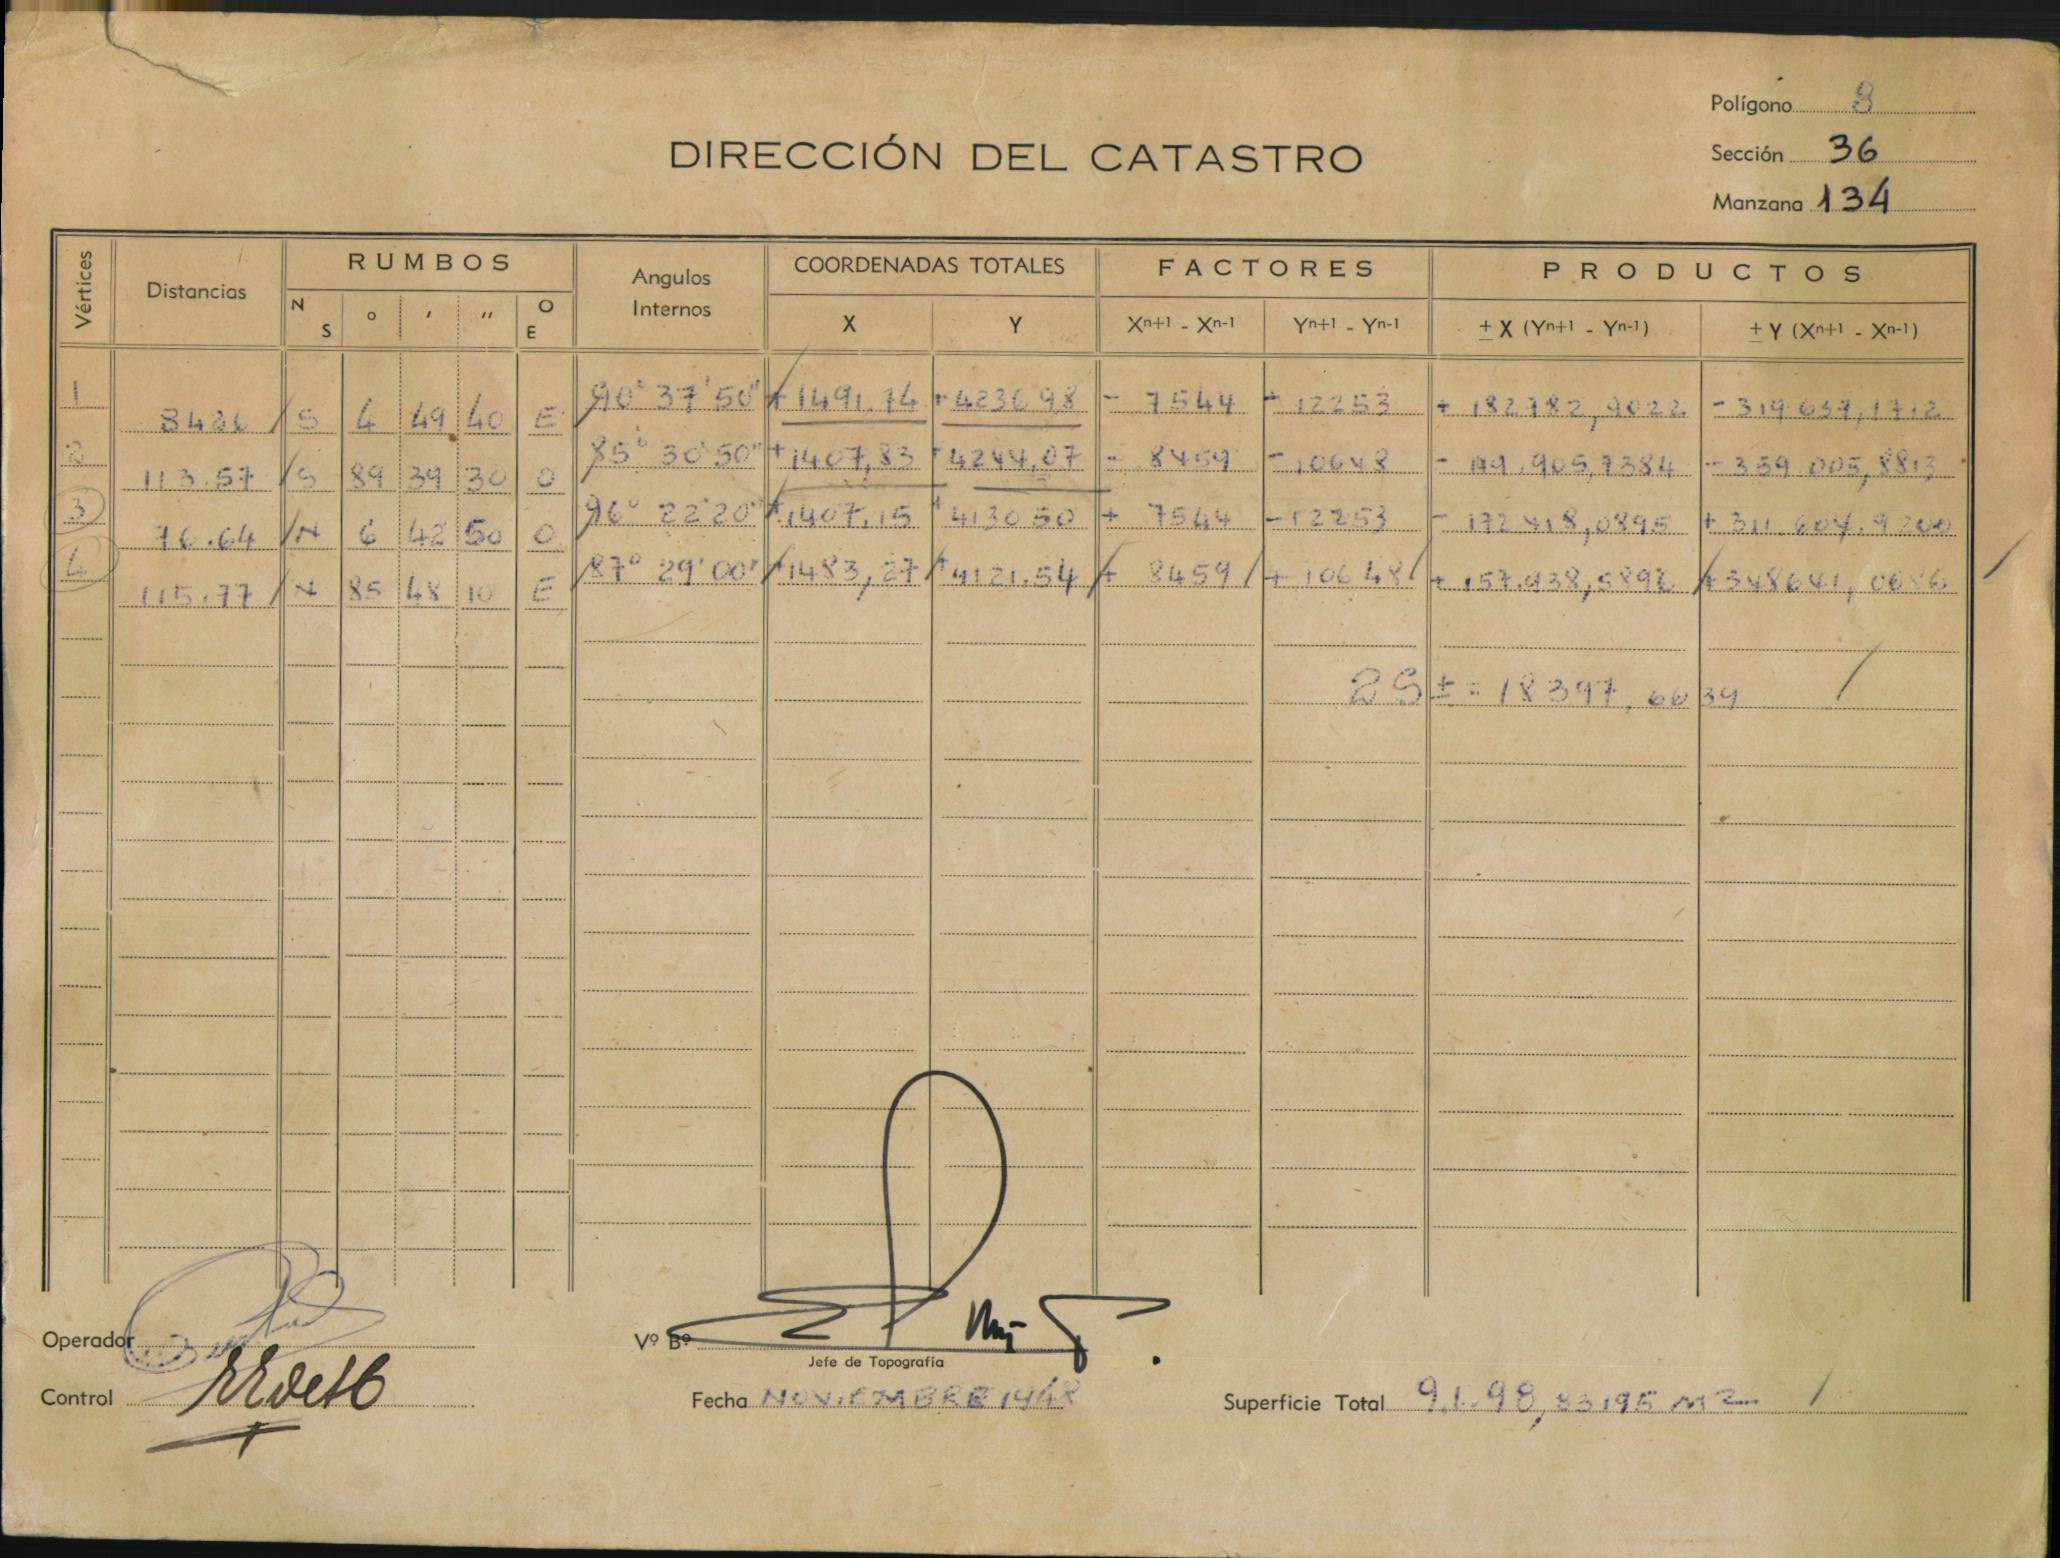 Polígono 8
DIRECCIÓN DEL CATASTRO
Sección 36
Manzana 134
Vértices Distancias RUMBOS Angulos Internos COORDENADAS TOTALES FACTORES PRODUCTOS
N S ° ' " O E X Y Xn+1 - Xn-1 Yn+1 - Yn-1 ± X (Yn+1 - Yn-1) ± Y (Xn+1 - Xn-1)
1 90° 37' 50" +1491.74 +4236 98 - 7544 + 12253 + 182782,9022 - 319.637,1712
8426 / S 4 49 40 E
2 85° 30' 50" +1407,83 +4244,07 - 8459 - 10648 - 149.905,7384 - 359 005,8813
113.57 / S 89 39 30 O
3 96° 22' 20" +1407.15 +4130 50 + 7544 - 12253 - 172418,0895 + 311.604.9200
76.64 / N 6 42 50 O
4 87° 29' 00" +1483,27 +4121.54 + 8459 + 10648 + 157.938,5896 + 348641,0686
115.77 / N 85 48 10 E
2S ± = 18397,6639
Operador
Vº Bº
Jefe de Topografía
Control
Fecha NOVIEMBRE 1948
Superficie Total 9.1.98,83195 m2